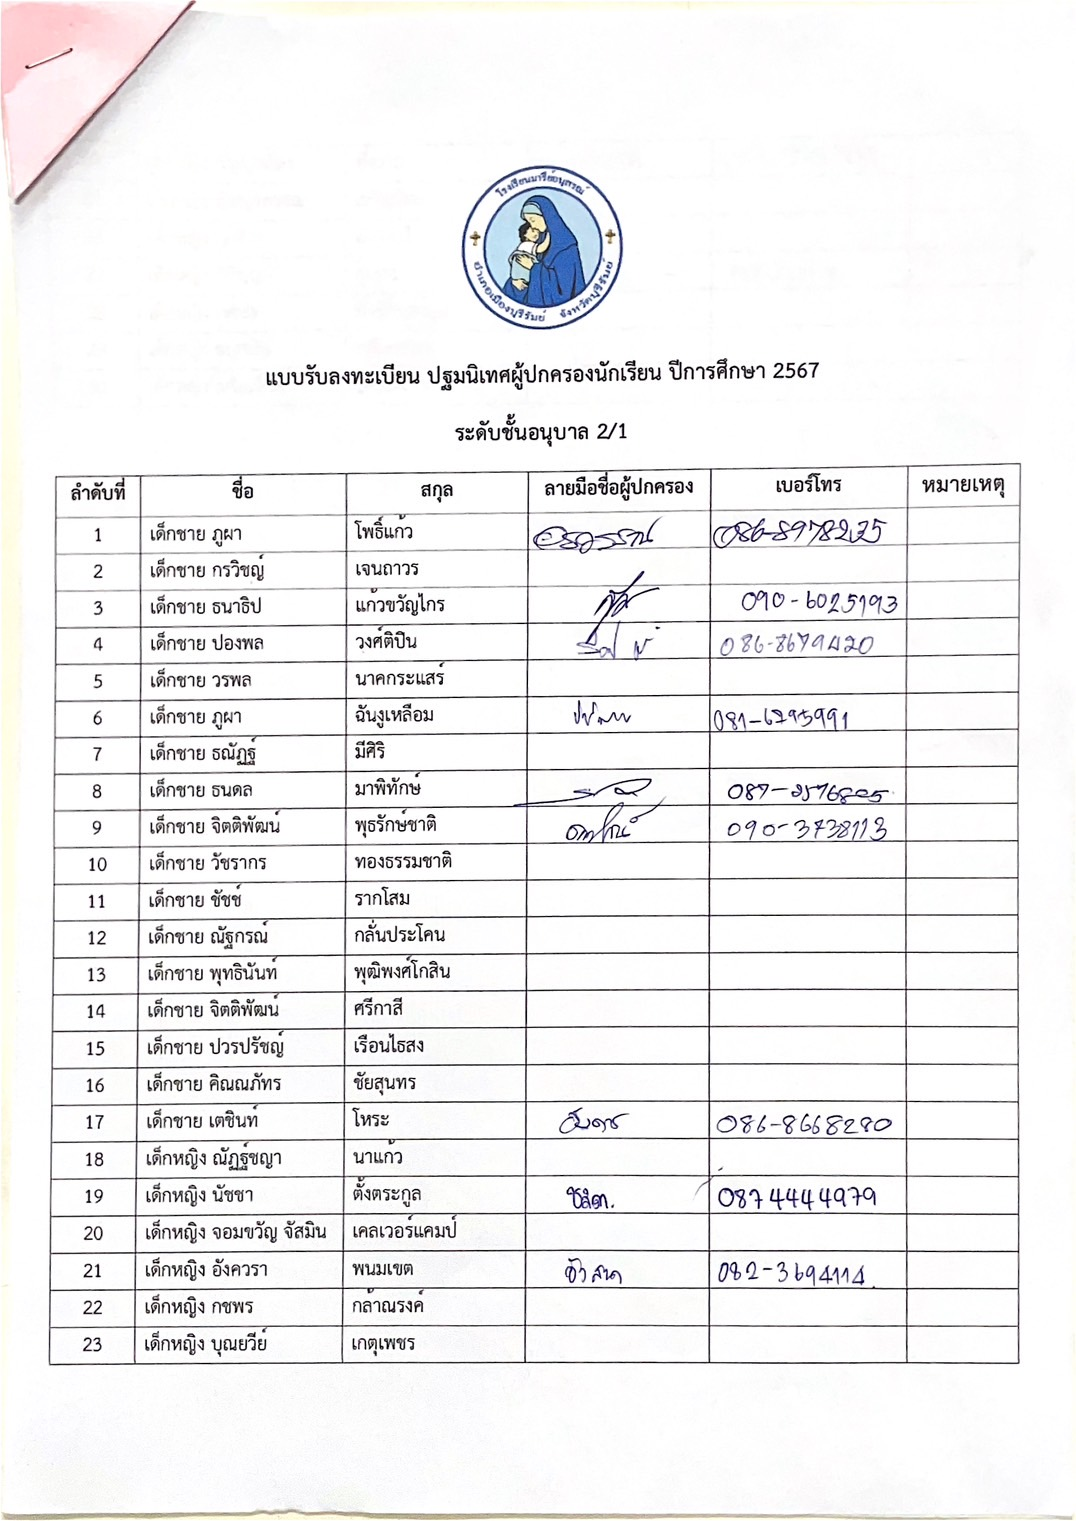 โรงเรียนมารีย์อนุสรณ์
อำเภอเมืองบุรีรัมย์ จังหวัดบุรีรัมย์
แบบรับลงทะเบียน ปฐมนิเทศผู้ปกครองนักเรียน ปีการศึกษา 2567
ระดับชั้นอนุบาล 2/1
ลำดับที่ ชื่อ สกุล ลายมือชื่อผู้ปกครอง เบอร์โทร หมายเหตุ
1 เด็กชาย ภูผา โพธิ์แก้ว
2 เด็กชาย กรวิชญ์ เจนถาวร
3 เด็กชาย ธนาธิป แก้วขวัญไกร 090-6025193
4 เด็กชาย ปองพล วงศ์ติปิน 086-8679420
5 เด็กชาย วรพล นาคกระแสร์
6 เด็กชาย ภูผา ฉันงูเหลือม 081-6795991
7 เด็กชาย ธณัฏฐ์ มีศิริ
8 เด็กชาย ธนดล มาพิทักษ์
9 เด็กชาย จิตติพัฒน์ พุธรักษ์ชาติ 090-3738113
10 เด็กชาย วัชรากร ทองธรรมชาติ
11 เด็กชาย ชัชช์ รากโสม
12 เด็กชาย ณัฐกรณ์ กลั่นประโคน
13 เด็กชาย พุทธินันท์ พุฒิพงศ์โกสิน
14 เด็กชาย จิตติพัฒน์ ศรีกาสี
15 เด็กชาย ปวรปรัชญ์ เรือนไธสง
16 เด็กชาย คิณณภัทร ชัยสุนทร
17 เด็กชาย เตชินท์ โหระ 086-8668280
18 เด็กหญิง ณัฏฐ์ชญา นาแก้ว
19 เด็กหญิง นัชชา ตั้งตระกูล 0874444979
20 เด็กหญิง จอมขวัญ จัสมิน เคลเวอร์แคมป์
21 เด็กหญิง อังควรา พนมเขต 082-3694114
22 เด็กหญิง กชพร กล้าณรงค์
23 เด็กหญิง บุณยวีย์ เกตุเพชร